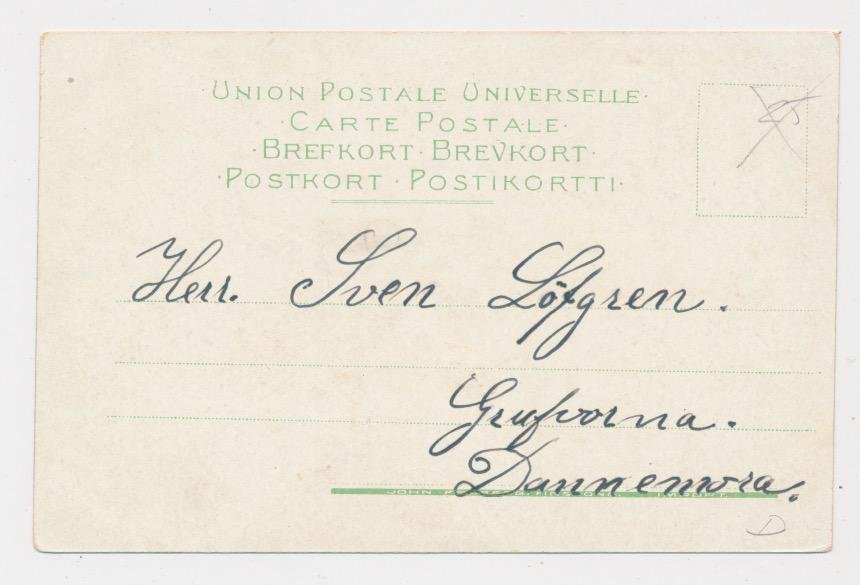 ·UNION POSTALE UNIVERSELLE·
·CARTE POSTALE·
·BREFKORT·BREVKORT·
·POSTKORT·POSTIKORTTI·
25
Herr. Sven Löfgren.
Grufvorna.
Dannemora.
JOHN
D